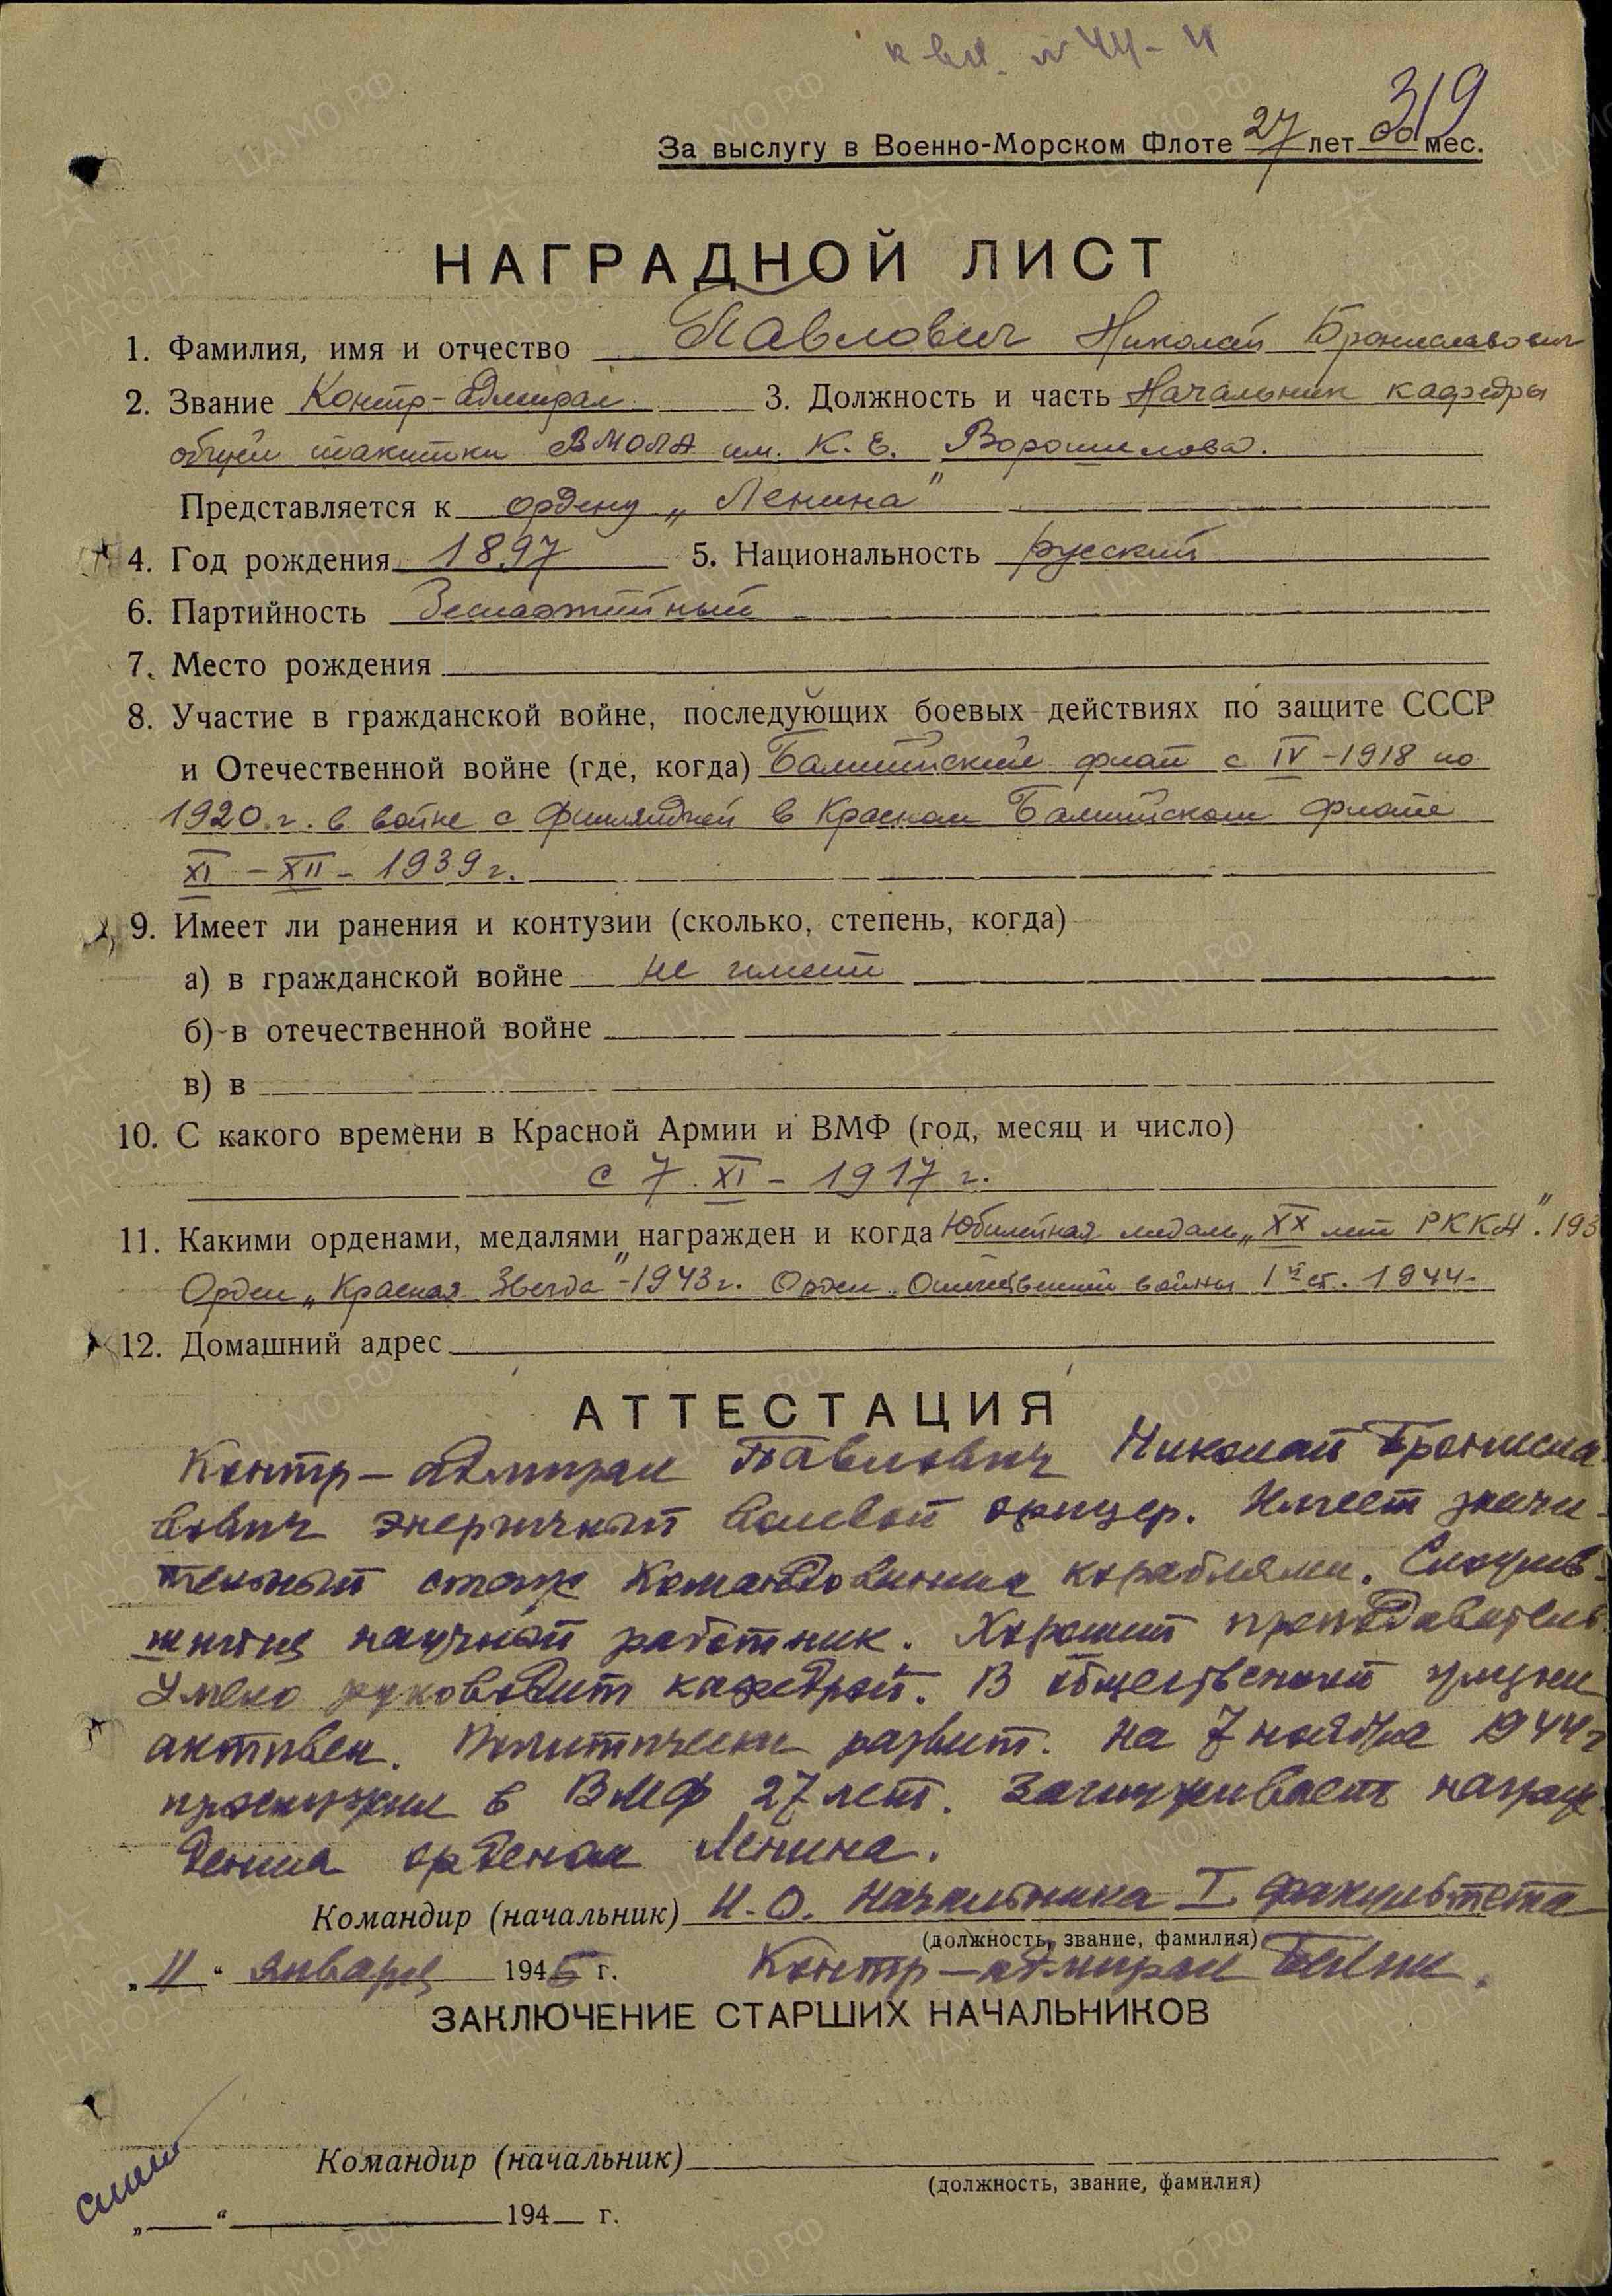 319
За выслугу в Военно-Морском Флоте 27 лет 00 мес.
НАГРАДНОЙ ЛИСТ
1. Фамилия, имя и отчество Павлович Николай Брониславович
2. Звание Контр-адмирал 3. Должность и часть Начальник кафедры
общей тактики ВМОЛА им. К. Е. Ворошилова.
Представляется к ордену „Ленина"
4. Год рождения 1897 5. Национальность русский
6. Партийность Беспартийный
7. Место рождения
8. Участие в гражданской войне, последующих боевых действиях по защите СССР
и Отечественной войне (где, когда) Балтийский флот с IV-1918 по
1920.г. в войне с Финляндией в Красном Балтийском флоте
XI-XII-1939г.
9. Имеет ли ранения и контузии (сколько, степень, когда)
а) в гражданской войне не имеет
б) в отечественной войне
в) в
10. С какого времени в Красной Армии и ВМФ (год, месяц и число)
с 7.XI-1917 г.
11. Какими орденами, медалями награжден и когда Юбилейная медаль „XX лет РККА". 193
Орден „Красная Звезда"-1943г. Орден Отечественной войны 1й ст. 1944-
12. Домашний адрес
АТТЕСТАЦИЯ
Контр-адмирал Павлович Николай Бронисла-
вович энергичный волевой офицер. Имеет значи-
тельный стаж командования кораблями. Сложив-
шийся научный работник. Хороший преподаватель.
Умело руководит кафедрой. В общественной жизни
активен. Политически развит. На 7 ноября 1944г
прослужил в ВМФ 27 лет. Заслуживает награж-
дения орденом Ленина.
Командир (начальник) И.О. Начальника I факультета
(должность, звание, фамилия)
„11" января 1945 г. Контр-адмирал
ЗАКЛЮЧЕНИЕ СТАРШИХ НАЧАЛЬНИКОВ
Командир (начальник)
(должность, звание, фамилия)
„ " 194 г.
ЦАМО РФ
ПАМЯТЬ НАРОДА